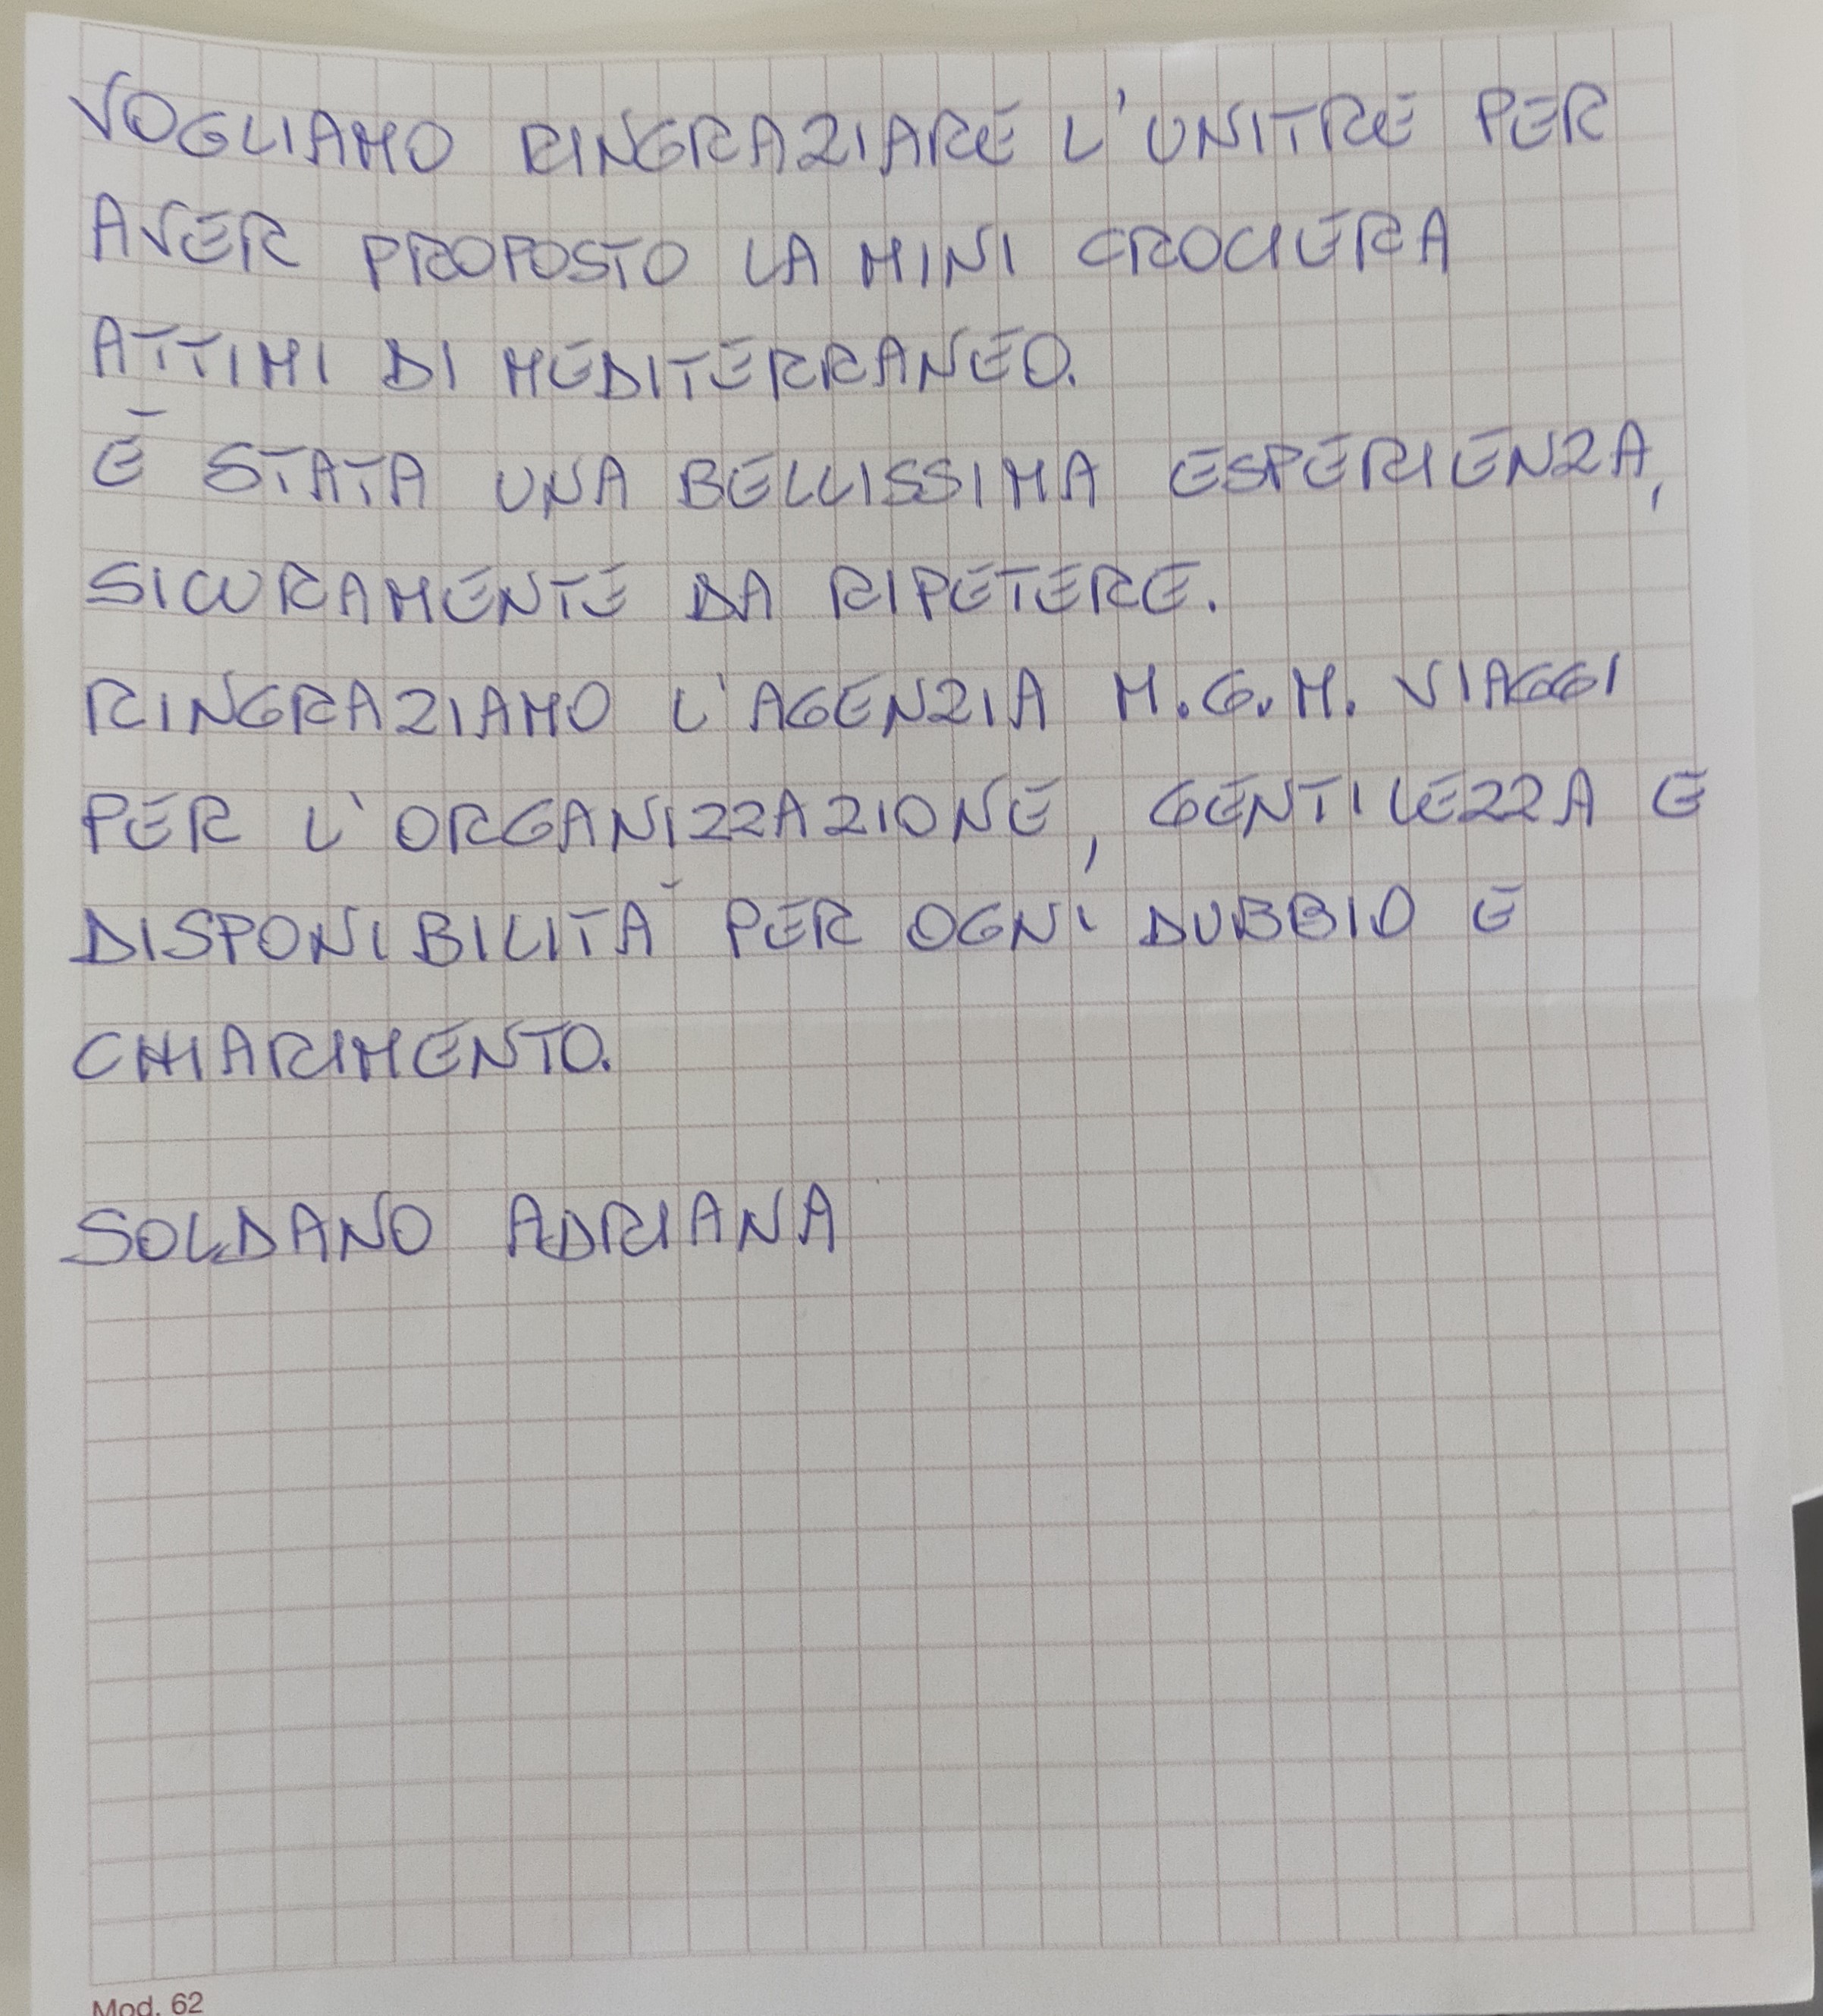 VOGLIAMO RINGRAZIARE L'UNITRE PER
AVER PROPOSTO LA MINI CROCIERA
ATTIMI DI MEDITERRANEO.
È STATA UNA BELLISSIMA ESPERIENZA,
SICURAMENTE DA RIPETERE.
RINGRAZIAMO L'AGENZIA M.G.M. VIAGGI
PER L'ORGANIZZAZIONE, GENTILEZZA E
DISPONIBILITÀ PER OGNI DUBBIO E
CHIARIMENTO.
SOLDANO ADRIANA
Mod. 62